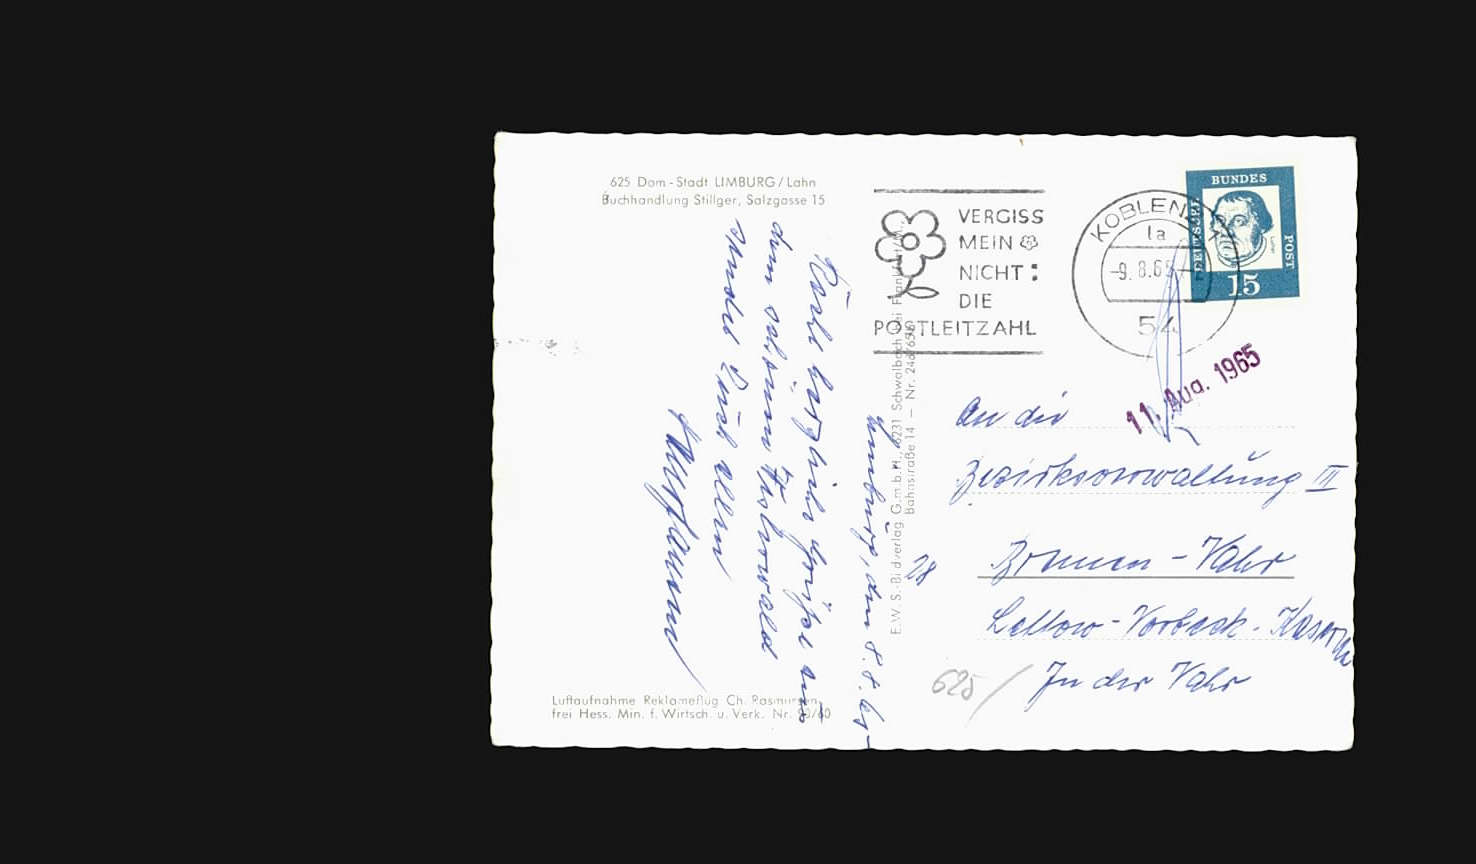 625 Dom-Stadt LIMBURG/Lahn
Buchhandlung Stillger, Salzgasse 15
Limburg, den 8.8.65
Recht herzliche Grüße aus
dem schönen Westerwald
sendet Euch allen
Luftaufnahme Reklameflug Ch. Rasmussen,
frei Hess. Min. f. Wirtsch. u. Verk. Nr. /60
E.W.S.-Bildverlag G.m.b.H., 6231 Schwalbach bei Frankfurt/M.,
Bahnstraße 14 – Nr.
VERGISS
MEIN
NICHT:
DIE
POSTLEITZAHL
KOBLENZ
1a
-9.8.65
54
DEUTSCHE
BUNDES
POST
15
11. Aug. 1965
An die
Bezirksverwaltung III
28 Bremen-Vahr
Lettow-Vorbeck-Kaserne
In der Vahr
625/